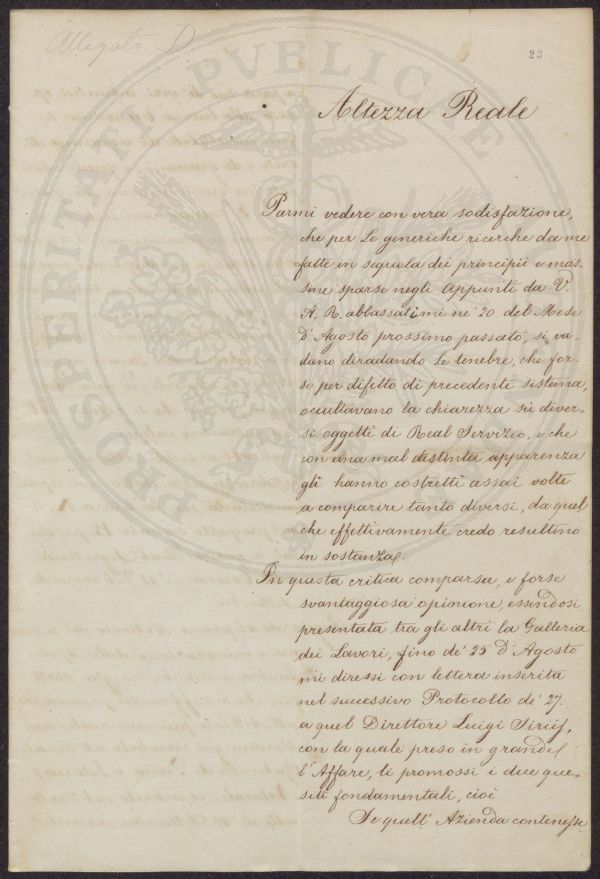 Allegato D
23
Altezza Reale
Parmi vedere con vera sodisfazione,
che per le generiche ricerche da me
fatte in sequela dei principii e mas-
sime sparse negli Appunti da V.
A. R. abbassatimi ne' 20 del Mese
d'Agosto prossimo passato, si va-
dano diradando le tenebre, che for-
se per difetto di precedente sistema,
occultavano la chiarezza sù diver-
si oggetti di Real Servizio, e che
con una mal distinta apparenza
gli hanno costretti assai volte
a comparire tanto diversi, da quel
che effettivamente credo resultino
in sostanza.
In questa critica comparsa, e forse
svantaggiosa opinione, essendosi
presentata tra gli altri la Galleria
dei Lavori, fino de' 25 d'Agosto
mi diressi con lettera inserita
nel successivo Protocollo de' 27.
a quel Direttore Luigi Siriès,
con la quale preso in grande
l'Affare, li promossi i due que-
siti fondamentali, cioè
Se quell'Azienda contenesse
PROSPERITATI PVBLICAE